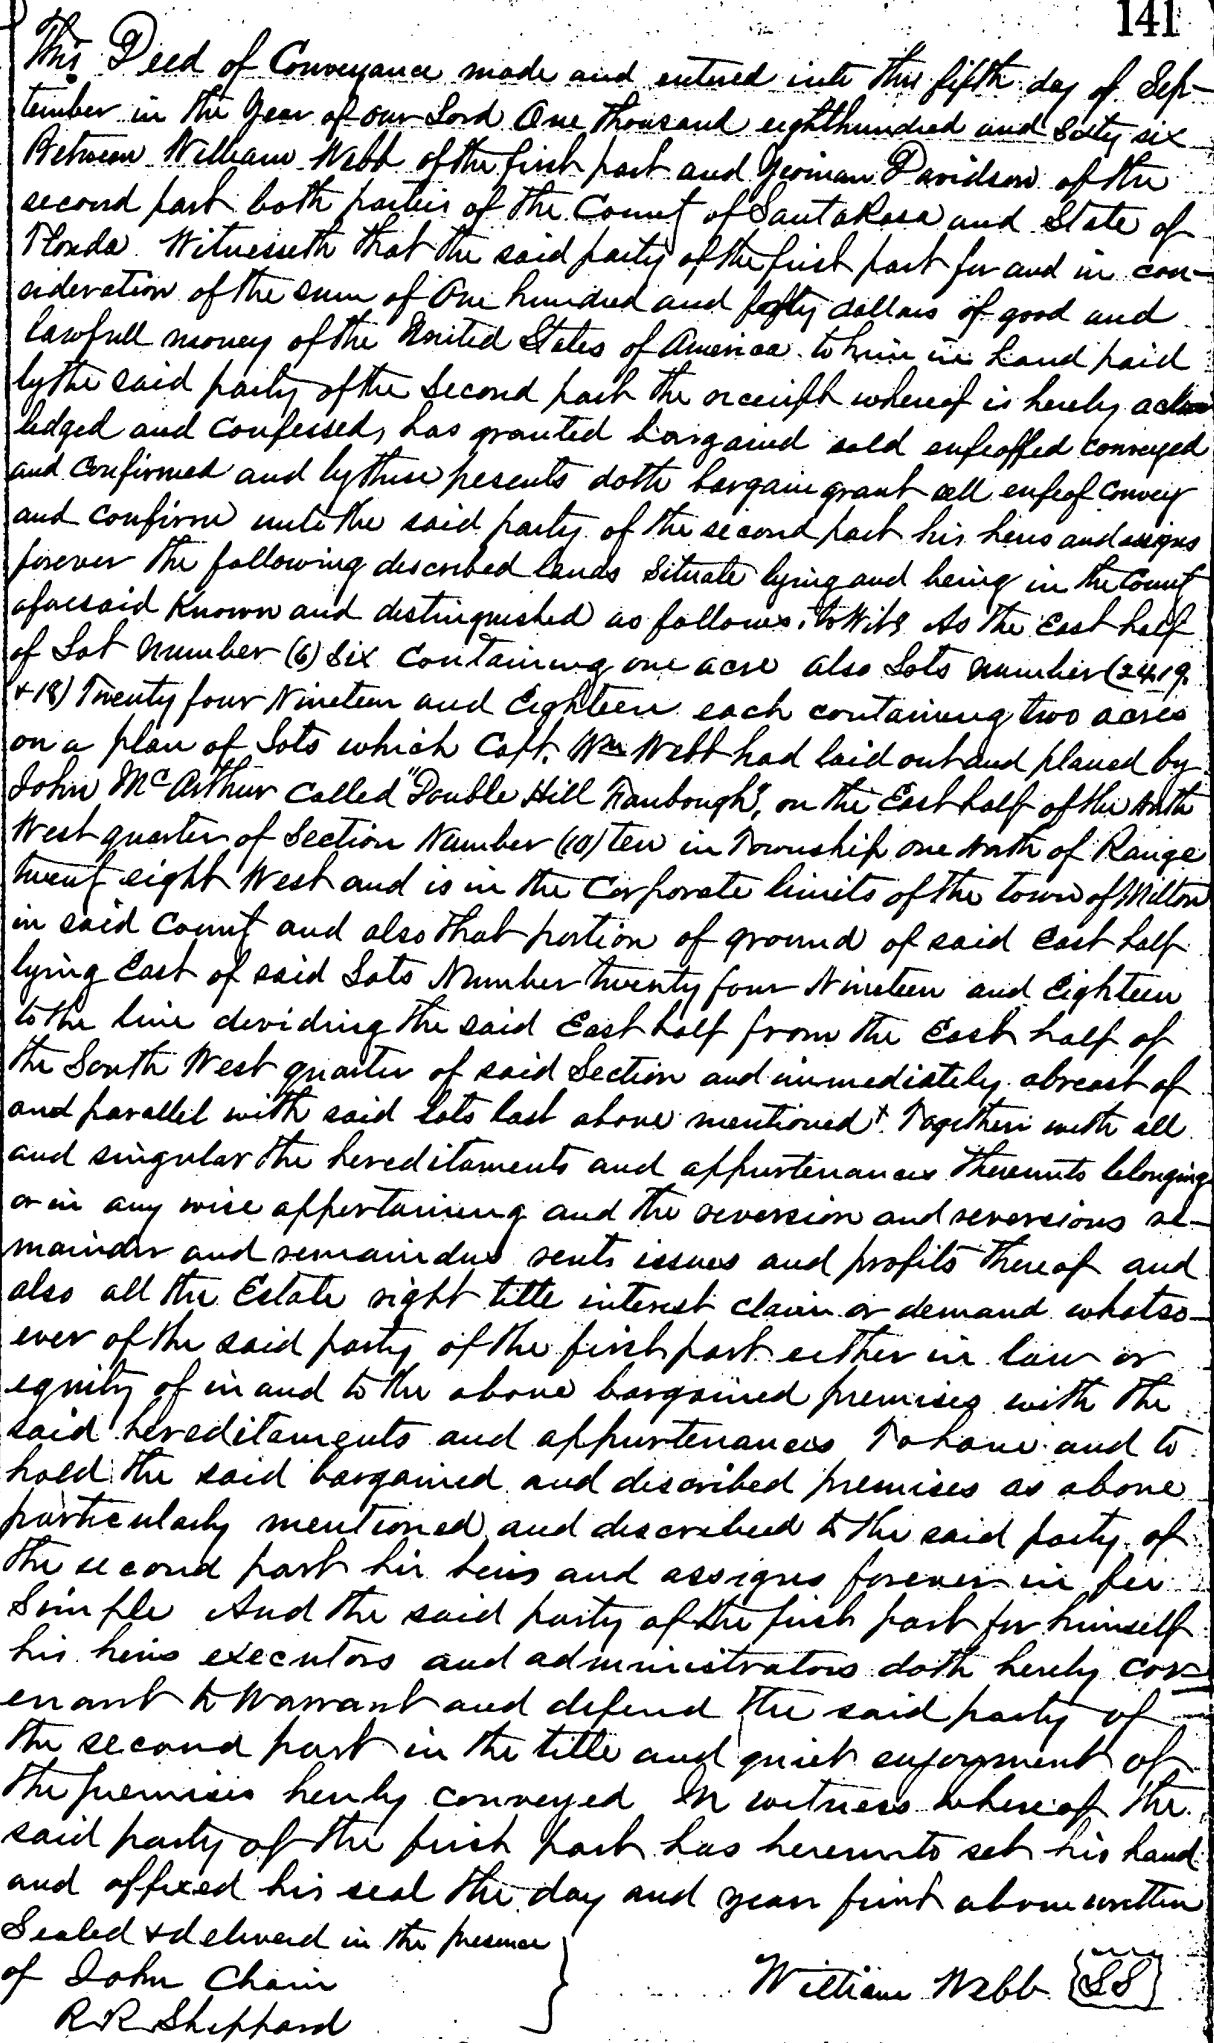 141
This Deed of Conveyance made and entered into this fifth day of Sep-
tember in the Year of our Lord One thousand eighthundred and Sixty six
Between William Webb of the first part and Yeoman Davidson of the
second part both parties of the County of Santa Rosa and State of
Florida. Witnesseth that the said party of the first part for and in con-
sideration of the sum of One hundred and fifty dollars of good and
lawfull money of the United States of America to him in hand paid
by the said party of the Second part the receipt whereof is hereby acknow
ledged and confessed, has granted bargained sold enfeoffed conveyed
and confirmed and by these presents doth bargain grant sell enfeof convey
and confirm unto the said party of the second part his heirs and assigns
forever the following described lands Situate lying and being in the County
aforesaid Known and distinguished as follows. to Wit, As the East half
of Lot Number (6) Six Containing one acre also Lots number (24.19.
+ 18) Twenty four Nineteen and Eighteen each containing two acres
on a plan of Lots which Capt. Wm Webb had laid out and planed by
John McArthur Called "Double Hill Hanbough", on the East half of the North
West quarter of Section Number (10) ten in Township one North of Range
twenty eight West and is in the Corporate limits of the town of Milton
in said County and also that portion of ground of said East half
lying East of said Lots Number twenty four Nineteen and Eighteen
to the line deviding the said East half from the East half of
the South West quarter of said Section and immediately abreast of
and parallel with said lots last above mentioned. Together with all
and singular the hereditaments and appurtenances thereunto belonging
or in any wise appertaining and the reversion and reversions re-
mainder and remainders rents issues and profits thereof and
also all the Estate right title interest claim or demand whatso-
ever of the said party of the first part either in law or
equity of in and to the above bargained premises with the
said hereditaments and appurtenances To have and to
hold the said bargained and described premises as above
particularly mentioned and described to the said party of
the second part his heirs and assigns forever in fee
Simple And the said party of the first part for himself
his heirs executors and administrators doth hereby cov-
enant to Warrant and defend the said party of
the second part in the title and quiet enjoyment of
the premises hereby conveyed In witness whereof the
said party of the first part has hereunto set his hand
and affixed his seal the day and year first above written
Sealed + delivered in the presence
of John Chain
William Webb {LS}
R R Sheppard